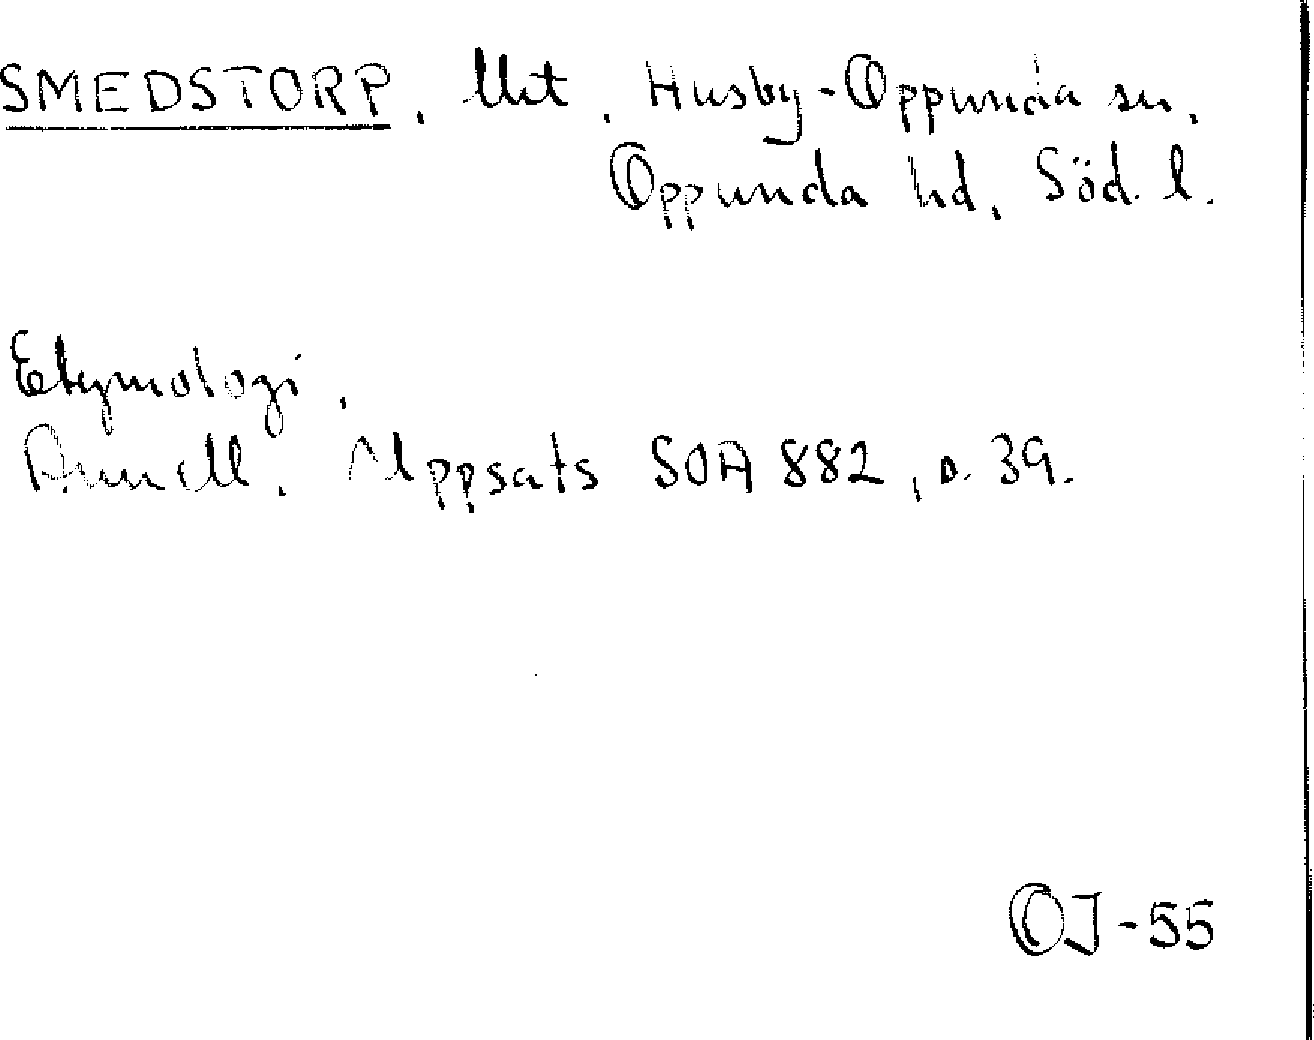 SMEDSTORP. Utt. Husby-Oppunda sn.
Oppunda hd, Söd. l.
Etymologi.
Arnell. Uppsats SOA 882, s. 39.
OJ-55